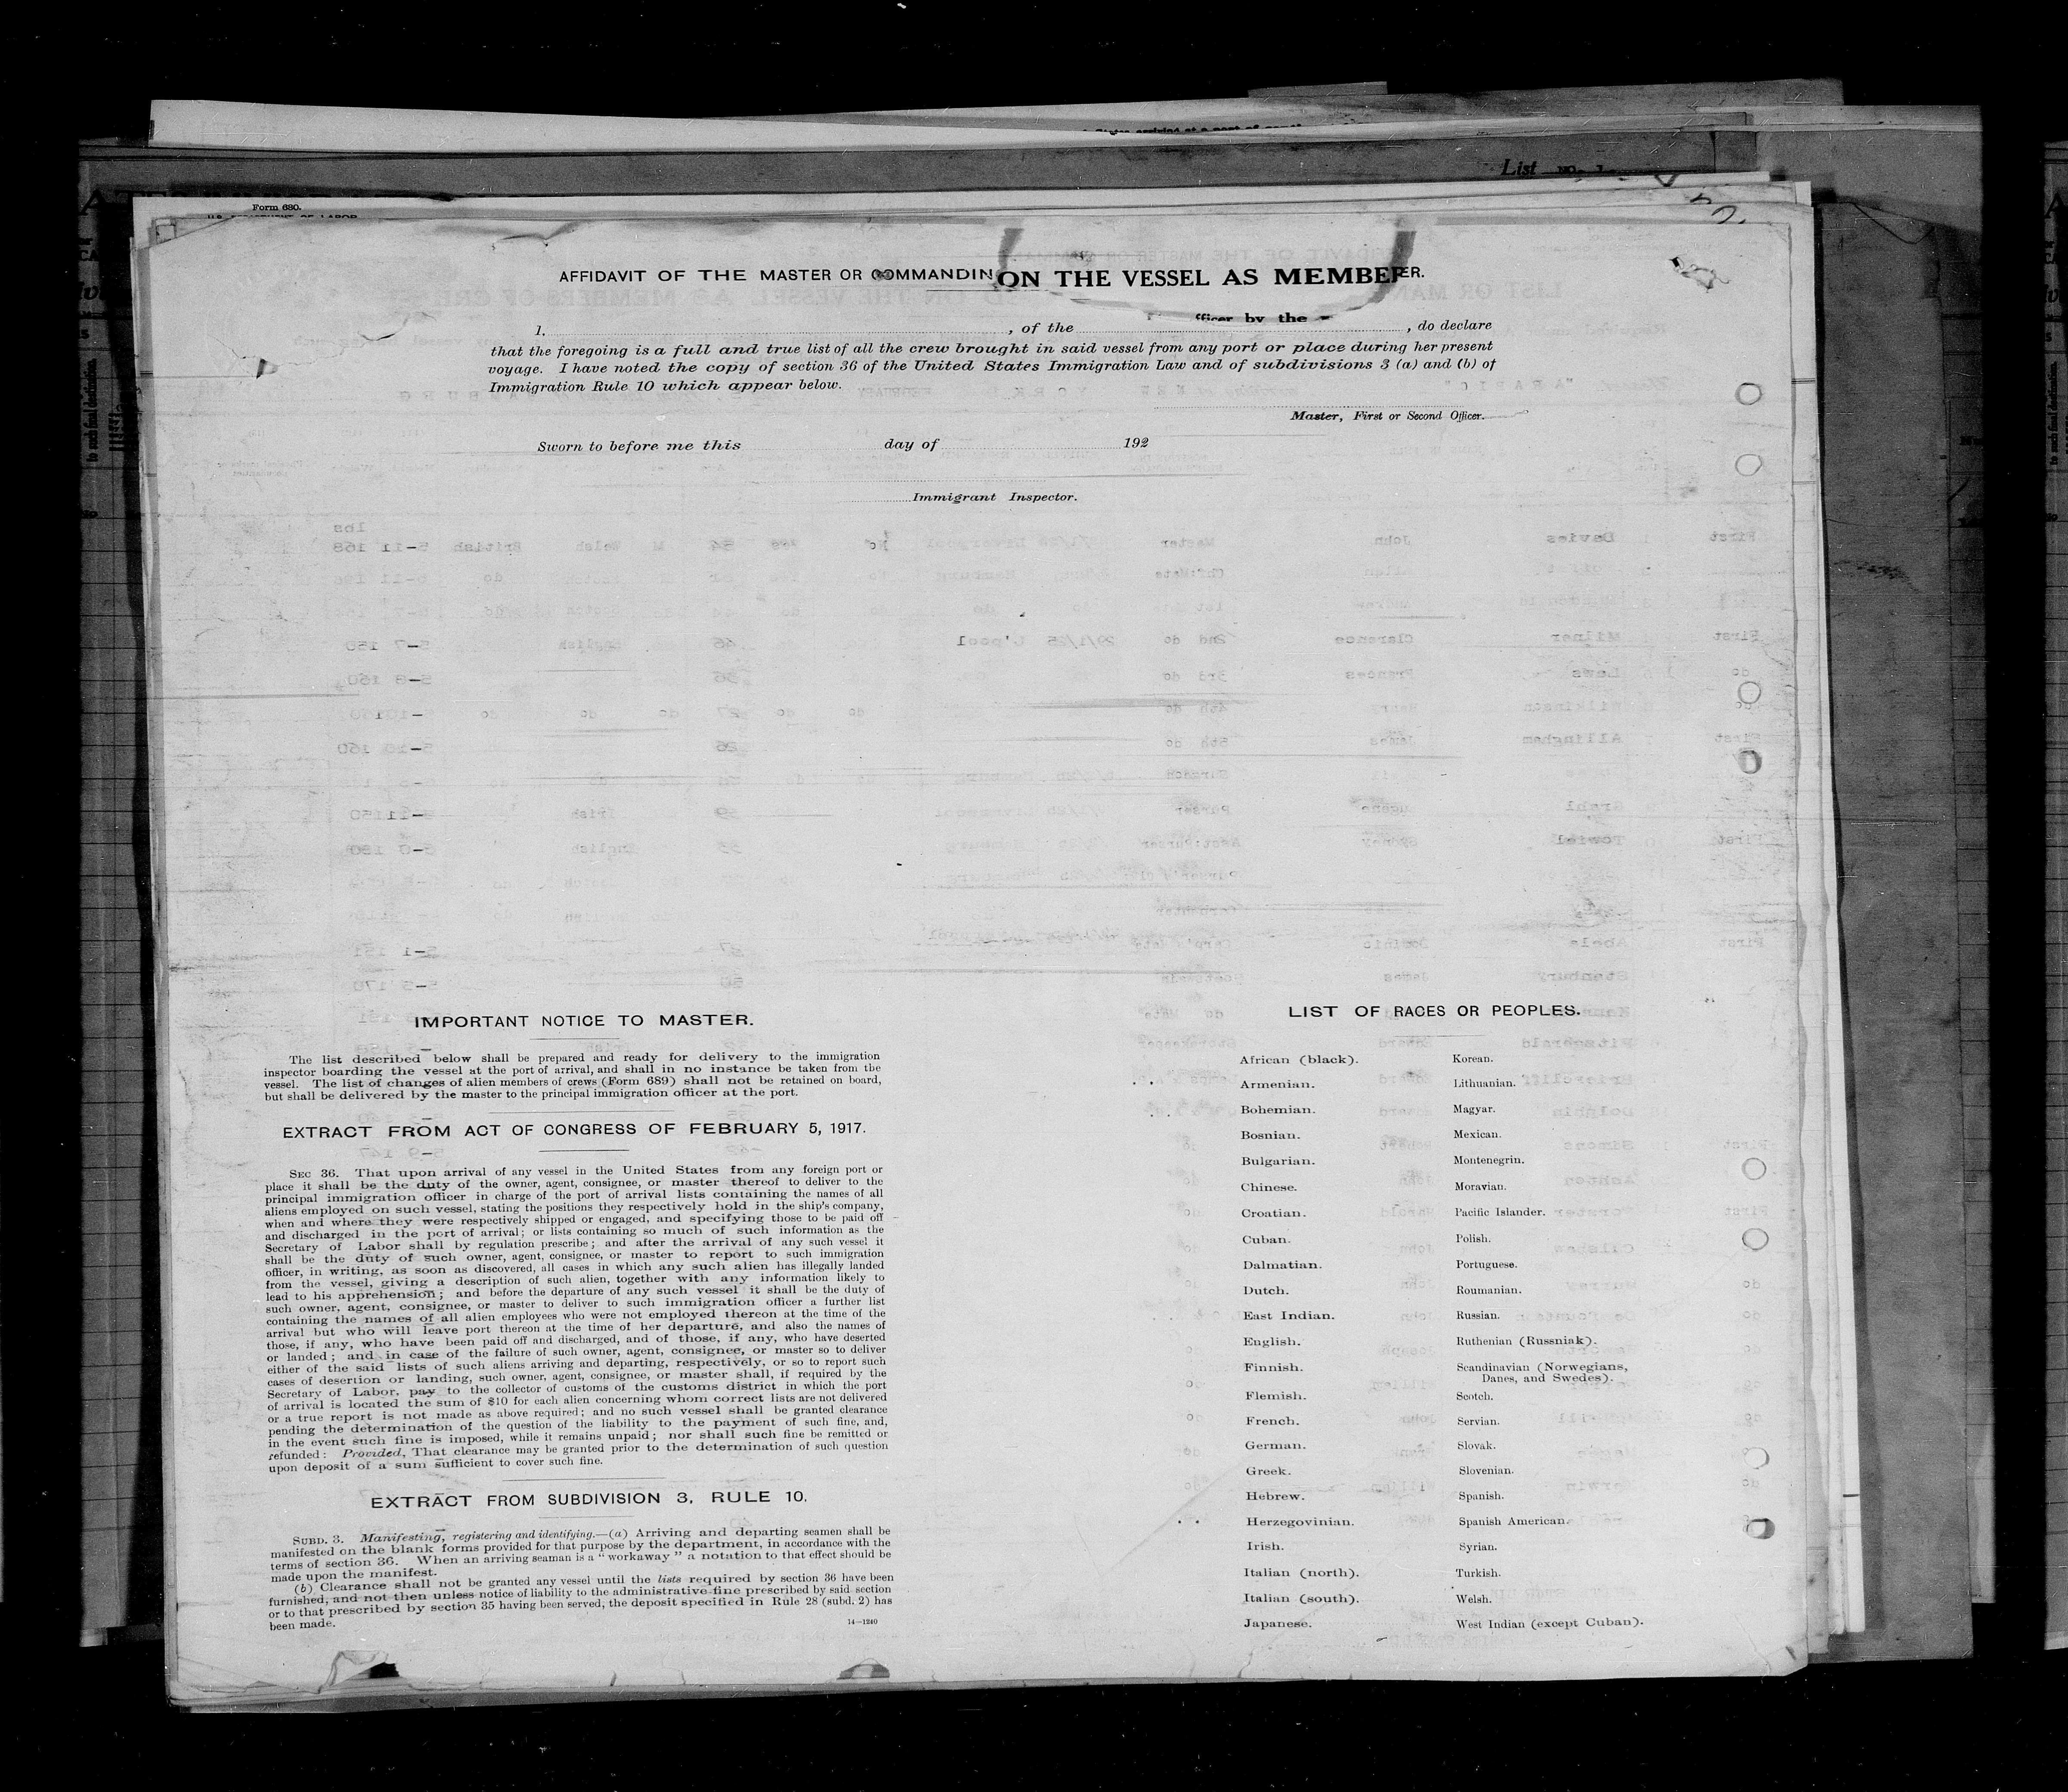 List
Form 680.
AFFIDAVIT OF THE MASTER OR COMMANDIN ON THE VESSEL AS MEMBER ER.
officer by the
I, , of the , do declare
that the foregoing is a full and true list of all the crew brought in said vessel from any port or place during her present
voyage. I have noted the copy of section 36 of the United States Immigration Law and of subdivisions 3 (a) and (b) of
Immigration Rule 10 which appear below.
Master, First or Second Officer.
Sworn to before me this day of 192
Immigrant Inspector.
IMPORTANT NOTICE TO MASTER.
The list described below shall be prepared and ready for delivery to the immigration
inspector boarding the vessel at the port of arrival, and shall in no instance be taken from the
vessel. The list of changes of alien members of crews (Form 689) shall not be retained on board,
but shall be delivered by the master to the principal immigration officer at the port.
EXTRACT FROM ACT OF CONGRESS OF FEBRUARY 5, 1917.
SEC 36. That upon arrival of any vessel in the United States from any foreign port or
place it shall be the duty of the owner, agent, consignee, or master thereof to deliver to the
principal immigration officer in charge of the port of arrival lists containing the names of all
aliens employed on such vessel, stating the positions they respectively hold in the ship's company,
when and where they were respectively shipped or engaged, and specifying those to be paid off
and discharged in the port of arrival; or lists containing so much of such information as the
Secretary of Labor shall by regulation prescribe; and after the arrival of any such vessel it
shall be the duty of such owner, agent, consignee, or master to report to such immigration
officer, in writing, as soon as discovered, all cases in which any such alien has illegally landed
from the vessel, giving a description of such alien, together with any information likely to
lead to his apprehension; and before the departure of any such vessel it shall be the duty of
such owner, agent, consignee, or master to deliver to such immigration officer a further list
containing the names of all alien employees who were not employed thereon at the time of the
arrival but who will leave port thereon at the time of her departure, and also the names of
those, if any, who have been paid off and discharged, and of those, if any, who have deserted
or landed; and in case of the failure of such owner, agent, consignee, or master so to deliver
either of the said lists of such aliens arriving and departing, respectively, or so to report such
cases of desertion or landing, such owner, agent, consignee, or master shall, if required by the
Secretary of Labor, pay to the collector of customs of the customs district in which the port
of arrival is located the sum of $10 for each alien concerning whom correct lists are not delivered
or a true report is not made as above required; and no such vessel shall be granted clearance
pending the determination of the question of the liability to the payment of such fine, and,
in the event such fine is imposed, while it remains unpaid; nor shall such fine be remitted or
refunded: Provided, That clearance may be granted prior to the determination of such question
upon deposit of a sum sufficient to cover such fine.
EXTRACT FROM SUBDIVISION 3, RULE 10.
SUBD. 3. Manifesting, registering and identifying.—(a) Arriving and departing seamen shall be
manifested on the blank forms provided for that purpose by the department, in accordance with the
terms of section 36. When an arriving seaman is a "workaway" a notation to that effect should be
made upon the manifest.
(b) Clearance shall not be granted any vessel until the lists required by section 36 have been
furnished, and not then unless notice of liability to the administrative fine prescribed by said section
or to that prescribed by section 35 having been served, the deposit specified in Rule 28 (subd. 2) has
been made.
14—1240
LIST OF RACES OR PEOPLES.
African (black).
Armenian.
Bohemian.
Bosnian.
Bulgarian.
Chinese.
Croatian.
Cuban.
Dalmatian.
Dutch.
East Indian.
English.
Finnish.
Flemish.
French.
German.
Greek.
Hebrew.
Herzegovinian.
Irish.
Italian (north).
Italian (south).
Japanese.
Korean.
Lithuanian.
Magyar.
Mexican.
Montenegrin.
Moravian.
Pacific Islander.
Polish.
Portuguese.
Roumanian.
Russian.
Ruthenian (Russniak).
Scandinavian (Norwegians,
Danes, and Swedes).
Scotch.
Servian.
Slovak.
Slovenian.
Spanish.
Spanish American.
Syrian.
Turkish.
Welsh.
West Indian (except Cuban).